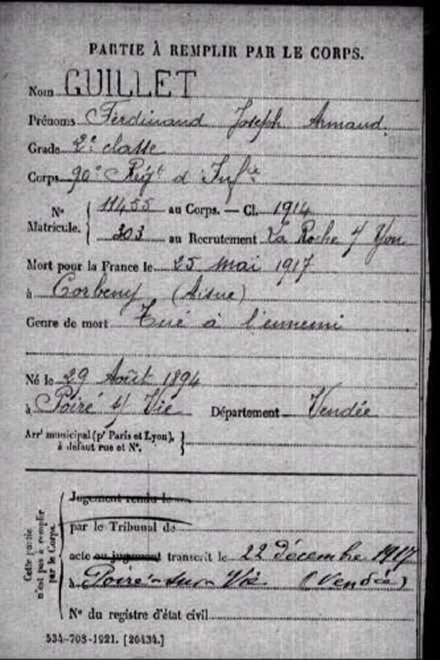 PARTIE À REMPLIR PAR LE CORPS.
Nom GUILLET
Prénoms Ferdinand Joseph Armand
Grade 2e classe
Corps 90e Régt d'Infie
N° Matricule. 11455 au Corps. — Cl. 1914
303 au Recrutement La Roche s/ Yon
Mort pour la France le 25 mai 1917
à Corbeny (Aisne)
Genre de mort Tué à l'ennemi
Né le 29 Août 1894
à Poiré s/ Vie Département Vendée
Arrt municipal (pr Paris et Lyon),
à défaut rue et N°.
Cette partie n'est pas à remplir par le Corps.
Jugement rendu le
par le Tribunal de
acte ou jugement transcrit le 22 décembre 1917
à Poiré-sur-Vie (Vendée)
N° du registre d'état civil
534-708-1921. [26434.]